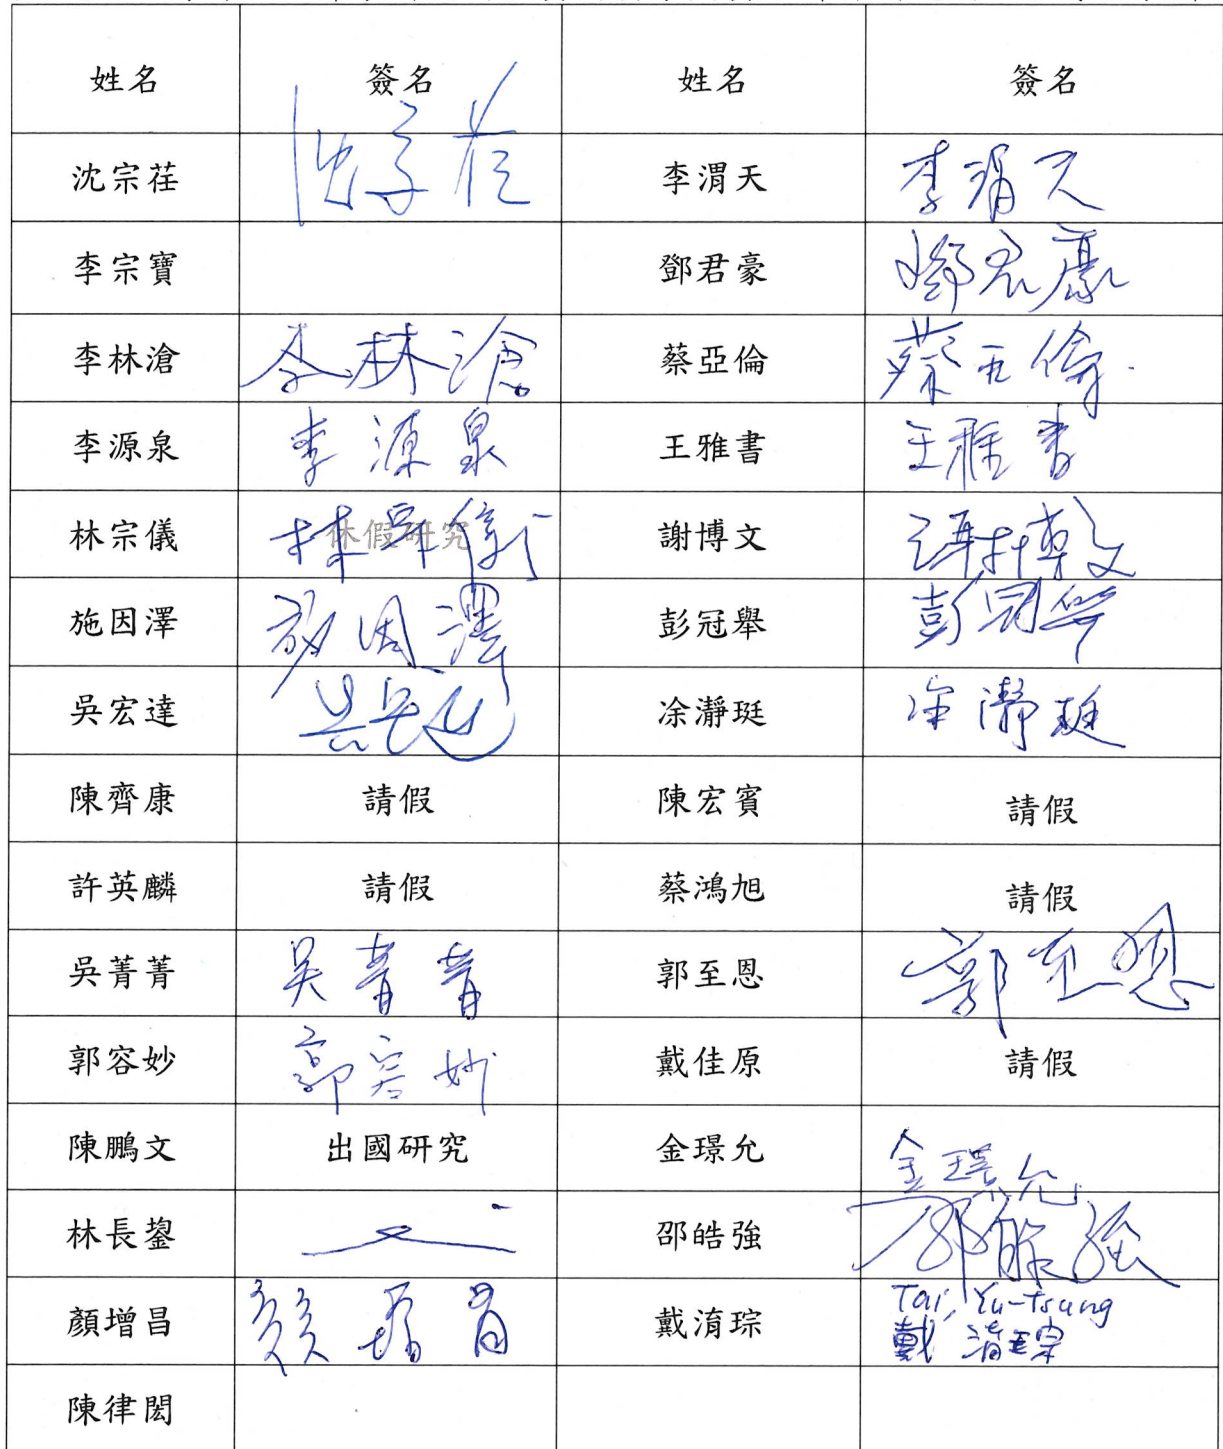 姓名 簽名 姓名 簽名
沈宗荏 沈宗荏 李渭天 李渭天
李宗寶 鄧君豪 鄧君豪
李林滄 李林滄 蔡亞倫 蔡亞倫
李源泉 李源泉 王雅書 王雅書
林宗儀 休假研究 林宗儀 謝博文 謝博文
施因澤 施因澤 彭冠舉 彭冠舉
吳宏達 吳宏達 凃瀞珽 凃瀞珽
陳齊康 請假 陳宏賓 請假
許英麟 請假 蔡鴻旭 請假
吳菁菁 吳菁菁 郭至恩 郭至恩
郭容妙 郭容妙 戴佳原 請假
陳鵬文 出國研究 金璟允 金璟允
林長鋆 邵皓強 邵皓強
顏增昌 顏增昌 戴淯琮 Tai, Yu-Tsung
戴淯琮
陳律閎